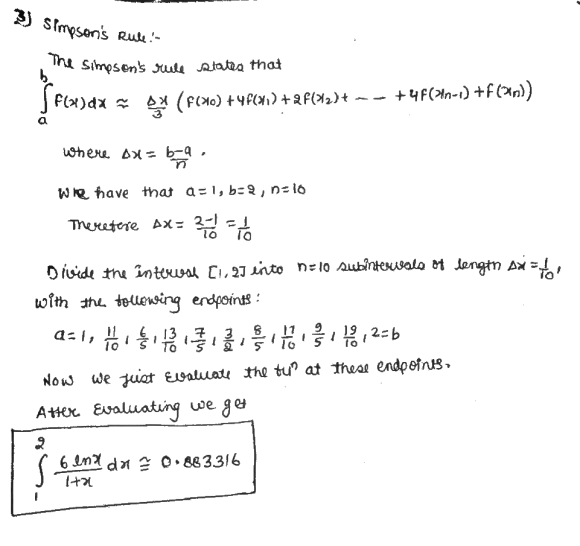 3) Simpson's Rule:-
The Simpson's rule states that
∫_a^b f(x)dx ≈ Δx/3 (f(x0) + 4f(x1) + 2f(x2) + -- -- + 4f(xn-1) + f(xn))
where Δx = b-a/n .
We have that a=1, b=2, n=10
Therefore Δx = 2-1/10 = 1/10
Divide the interval [1,2] into n=10 subintervals of length Δx = 1/10,
with the following endpoints:
a=1, 11/10, 6/5, 13/10, 7/5, 3/2, 8/5, 17/10, 9/5, 19/10, 2=b
Now we just Evaluate the fun at these endpoints.
After Evaluating we get
∫_1^2 6lnx/1+x dx ≅ 0.883316